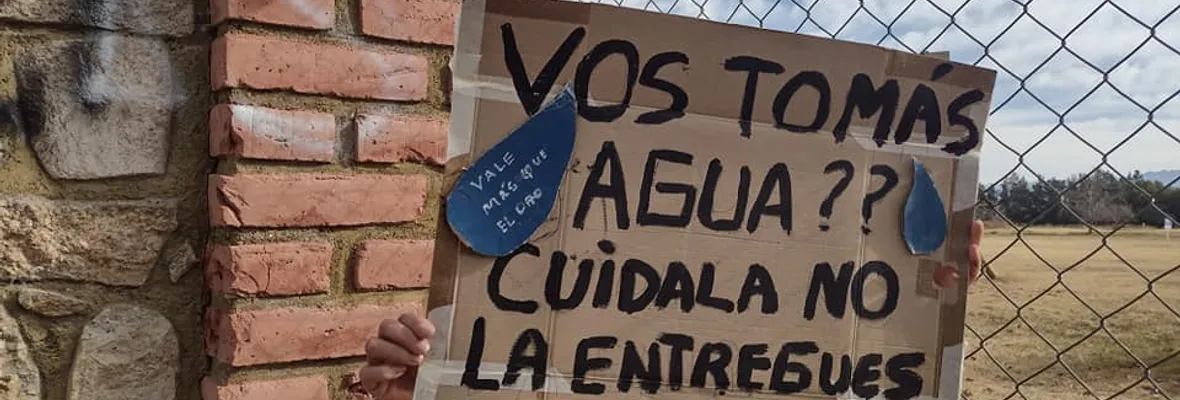 VOS TOMÁS
AGUA??
CUIDALA NO
LA ENTREGUES
VALE
MÁS QUE
EL ORO